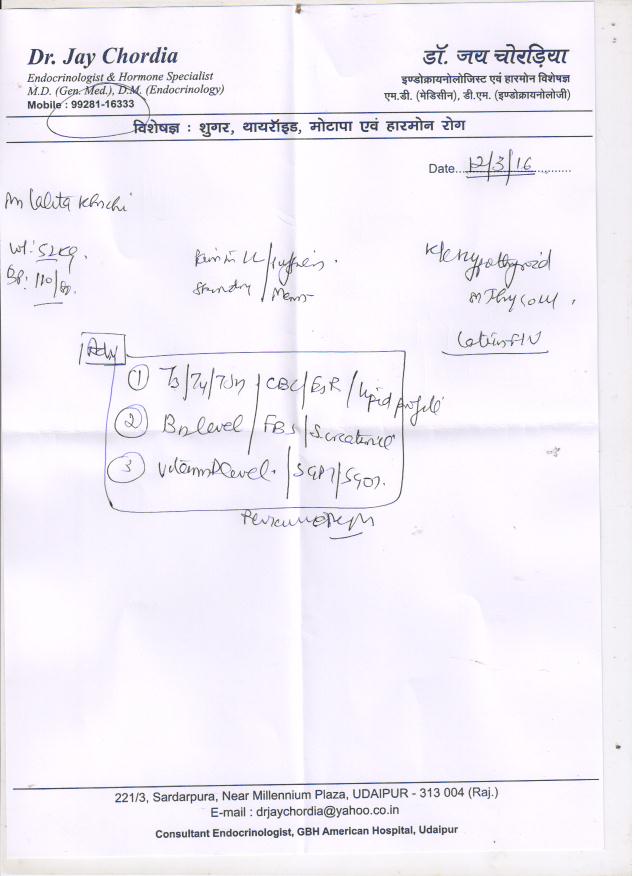 Dr. Jay Chordia
Endocrinologist & Hormone Specialist
M.D. (Gen. Med.), D.M. (Endocrinology)
Mobile : 99281-16333
डॉ. जय चोरड़िया
इण्डोक्रायनोलोजिस्ट एवं हारमोन विशेषज्ञ
एम.डी. (मेडिसीन), डी.एम. (इण्डोक्रायनोलोजी)
विशेषज्ञ : शुगर, थायरॉइड, मोटापा एवं हारमोन रोग
Date.. 12/3/16
Lalita
Wt: 52 kg.
BP: 110/80.
K/c Hypothyroid
Adv
① T3/T4/TSH / CBC / ESR / Lipid profile
② B12 level / FBS / S. creatinine
③ Vitamin D level. / SGPT / SGOT.
221/3, Sardarpura, Near Millennium Plaza, UDAIPUR - 313 004 (Raj.)
E-mail : drjaychordia@yahoo.co.in
Consultant Endocrinologist, GBH American Hospital, Udaipur